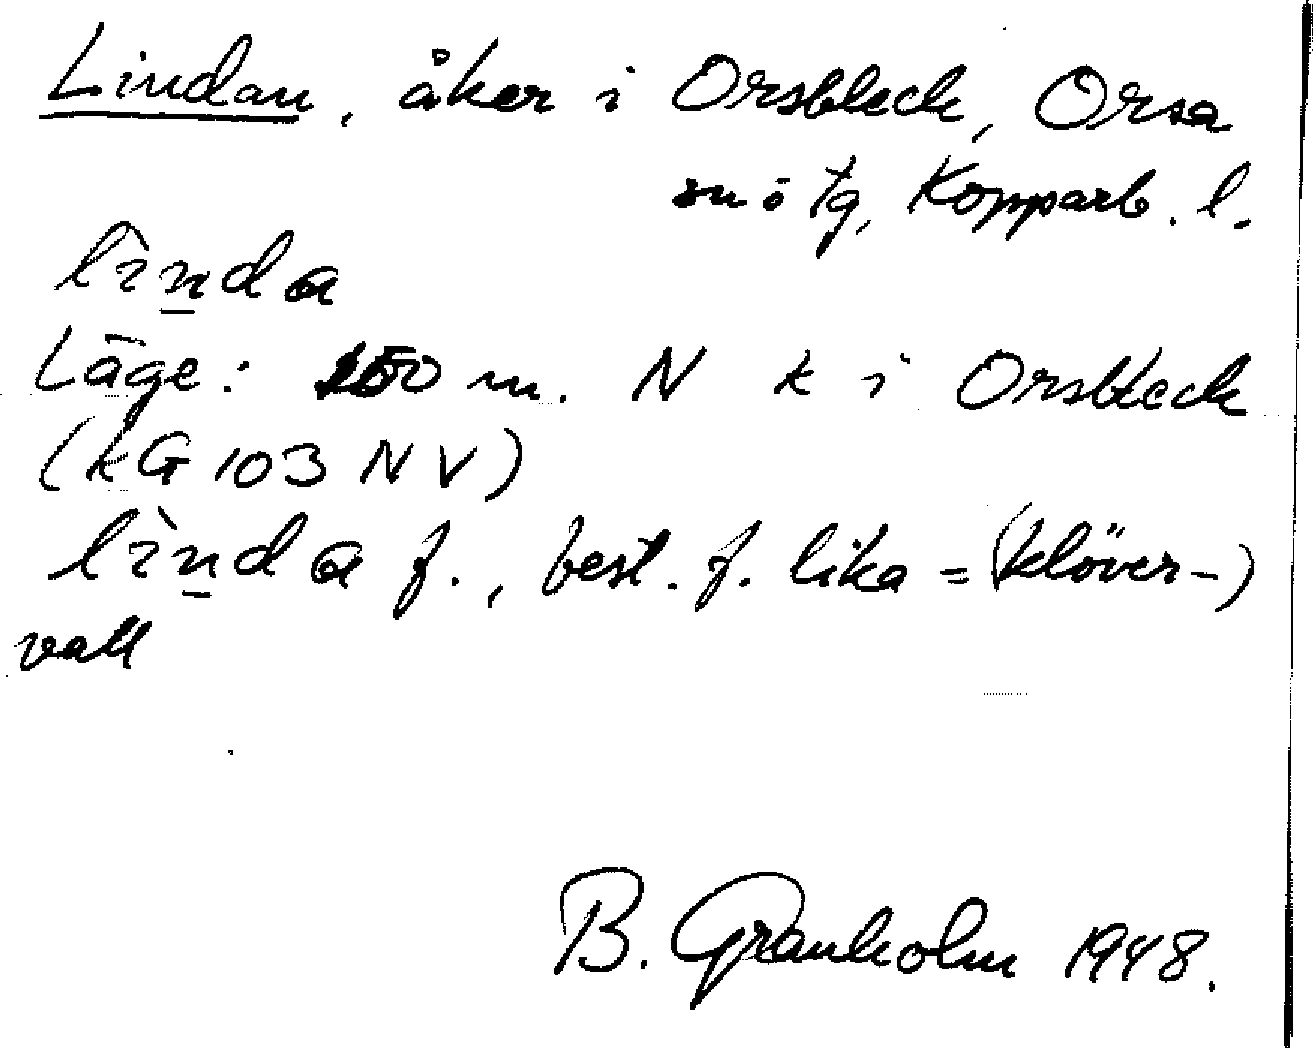 Lindan, åker i Orsbleck, Orsa
sn o tg, Kopparb. l.
lìnda
Läge: m. N k i Orsbleck
(kG 103 NV)
lìnda f., best. f. lika = (klöver-)
vall
B. Granholm 1948.